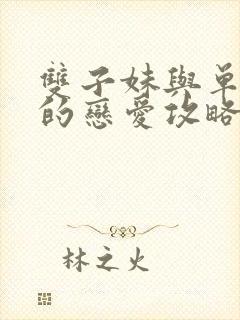 雙子妹與單
的戀愛攻略
林之火